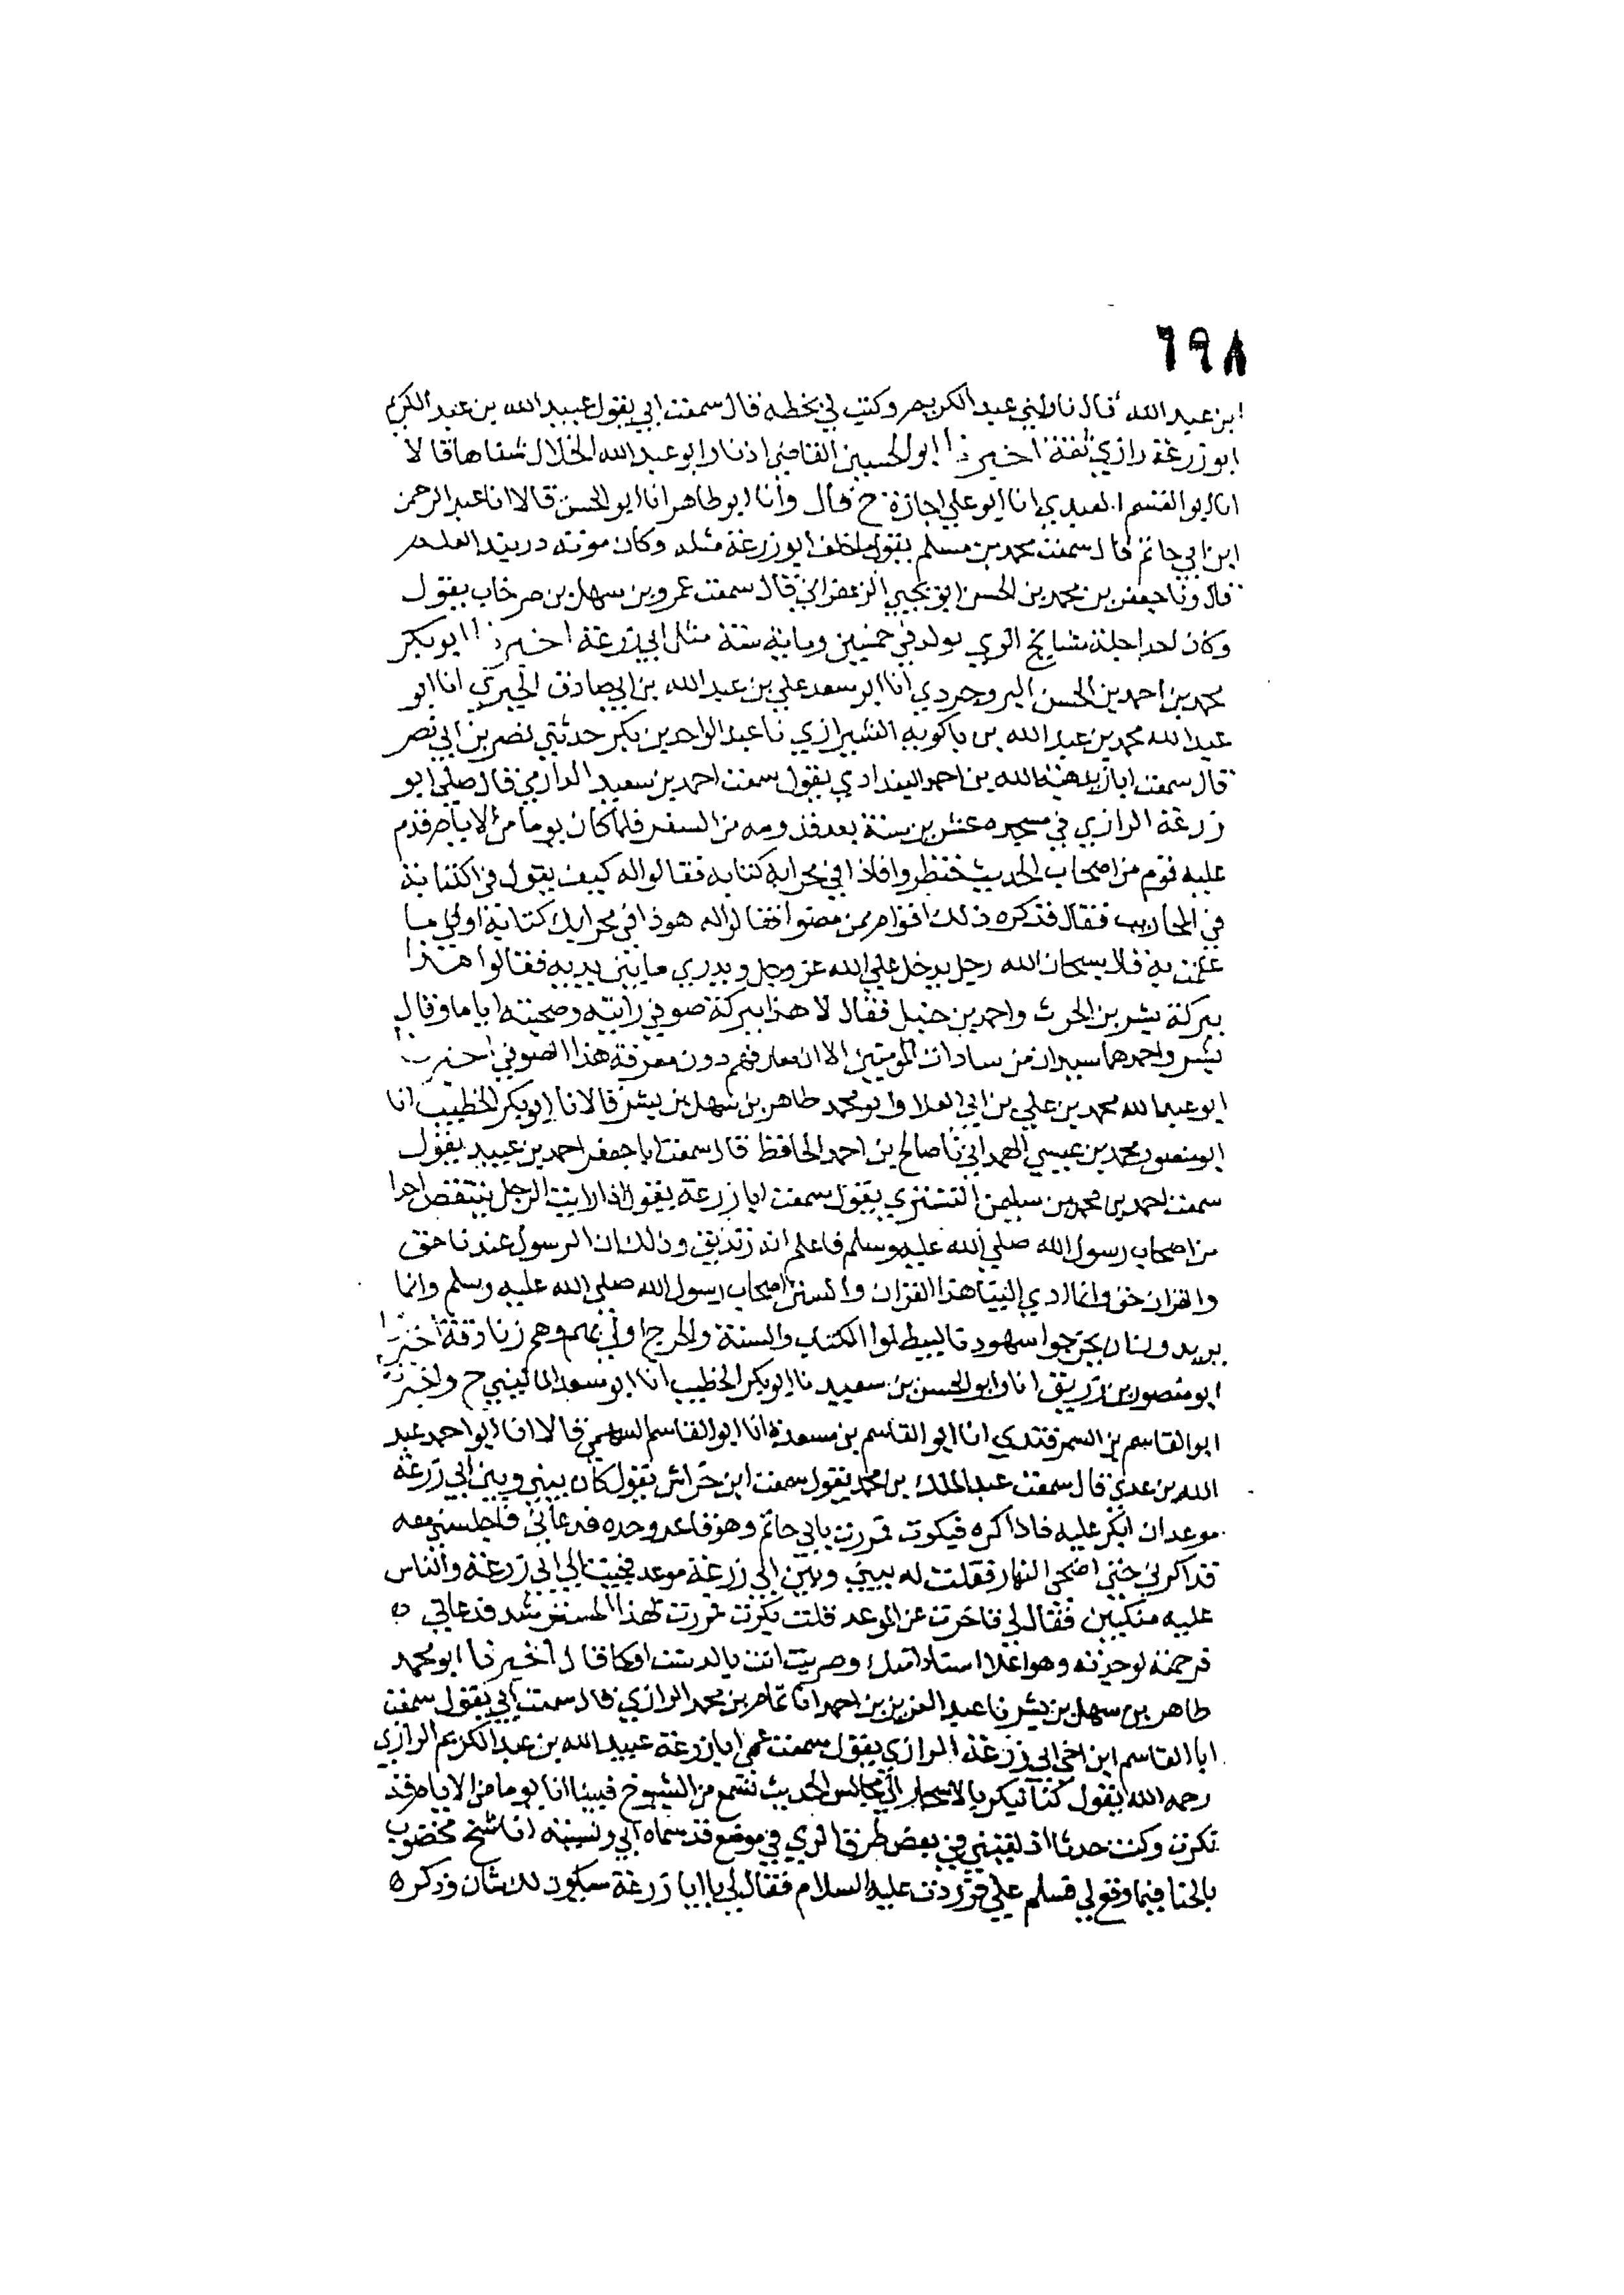 ٦٩٨
ابن عبد الله قال ناولني عبد الكريم وكتب لي بخطه قال سمعت ابي يقول عبيد الله بن عبد الكريم
ابو زرعة رازي ثقة اخبرنا ابو الحسين القاضي اذنا وابو عبد الله الخلال شفاها قالا
انا ابو القسم العبدي انا ابو علي اجازة ح قال وانا ابو طاهر انا ابو الحسن قالا انا عبد الرحمن
ابن ابي حاتم قال سمعت محمد بن مسلم يقول ما خلف ابو زرعة مثله وكان موته دريند العلم
قال ونا جعفر بن محمد بن الحسن ابو يحيي الزعفراني قال سمعت عمرو بن سهل بن صرخاب يقول
وكان احد اجلة مشايخ الري يولد في خمسين ومايه سنة مثل ابي زرعة اخبرنا ابو بكر
محمد بن احمد بن الحسن البروجردي انا ابو سعد علي بن عبد الله بن ابي صادق الحيري انا ابو
عبد الله محمد بن عبد الله بن باكويه الشيرازي نا عبد الواحد بن بكر حدثني نصر بن ابي نصر
قال سمعت ابا زيد هبة الله بن احمد البغدادي يقول سمعت احمد بن سعيد الدارمي قال صلي ابو
زرعة الرازي في مسجده عشرين سنة بعد قدومه من السفر فلما كان يوما من الايام قدم
عليه قوم من اصحاب الحديث فنظروا فاذا في محرابه كتابه فقالوا له كيف يقول في الكتابة
في المحاريب فقال قد كره ذلك اقوام ممن مضوا فقالوا له هوذا في محرابك كتابة اوما
علمت به قال سبحان الله رجل يدخل علي الله عز وجل ويدري ما بين يديه فقالوا هذا
ببركة بشر بن الحرث واحمد بن حنبل فقال لا هذا ببركة صوفي رايته وصحبته اياما وقال
بشر واحمد هما سيدان من سادات المومنين الا ان معارفهم دون معرفة هذا الصوفي اخبرنا
ابو عبد الله محمد بن علي بن ابي العلا وابو محمد طاهر بن سهل بن بشر قالا نا ابو بكر الخطيب انا
ابو منصور محمد بن عيسي الهمداني نا صالح بن احمد الحافظ قال سمعت ابا جعفر احمد بن عبيد يقول
سمعت احمد بن محمد بن سليمن التستري يقول سمعت ابا زرعة يقول اذا رايت الرجل ينتقص احدا
من اصحاب رسول الله صلي الله عليه وسلم فاعلم انه زنديق وذلك ان الرسول عندنا حق
والقران حق وانما ادي الينا هذا القران والسنن اصحاب رسول الله صلي الله عليه وسلم وانما
يريدون ان يجرحوا شهودنا ليبطلوا الكتاب والسنة والجرح اولي بهم وهم زنادقة اخبرنا
ابو منصور بن زريق انا وابو الحسن بن سعيد نا ابو بكر الخطيب انا ابو سعد الماليني ح واخبرنا
ابو القاسم بن السمرقندي انا ابو القاسم بن مسعدة انا ابو القاسم السهمي قالا انا ابو احمد عبد
الله بن عدي قال سمعت عبد الملك بن محمد يقول سمعت ابن خراش يقول كان بيني وبين ابي زرعة
موعد ان ابكر عليه فاذاكره فبكرت فمررت بابي حاتم وهو قاعد وحده فدعاني فاجلسني معه
فذاكرني حتي اضحي النهار فقلت له بيني وبين ابي زرعة موعد فجيت الي ابي زرعة والناس
عليه منكبين فقال لي تاخرت عن الموعد قلت بكرت فمررت بهذا المسترشد فدعاني
فرحمته لوحدته وهو اعلا اسنادا منك وصرت انت بالدست اوكما قال اخبرنا ابو محمد
طاهر بن سهل بن بشر نا عبد العزيز بن احمد انا تمام بن محمد الرازي قال سمعت ابي يقول سمعت
ابا القاسم ابن اخي ابي زرعة الرازي يقول سمعت عمي ابا زرعة عبيد الله بن عبد الكريم الرازي
رحمه الله يقول كنا نبكر بالاسحار الي مجالس الحديث نسمع من الشيوخ فبينا انا يوما من الايام قد
بكرت وكنت حدثا اذ لقيني في بعض طرق الري في موضع قد سماه ابي ونسيته انا شيخ مخضوب
بالحنا فيما وقع لي فسلم علي فرددت عليه السلام فقال لي يا ابا زرعة سيكون لك شان وذكر ه